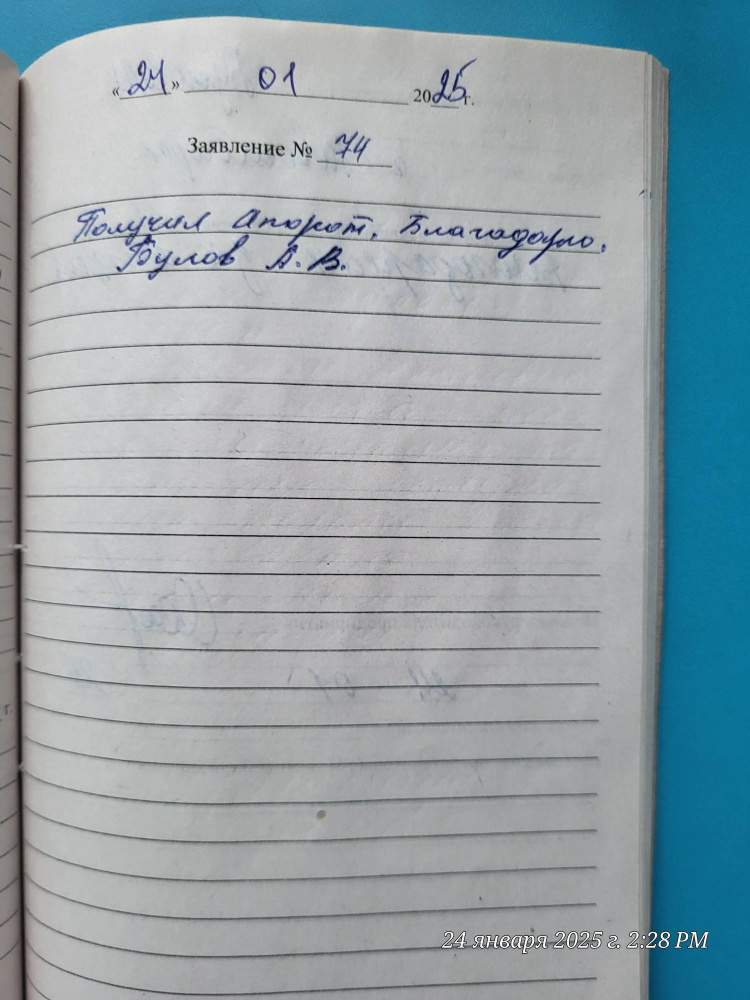 «24» 01 2025 г.
Заявление № 74
Получил Апорот. Благодорю.
Булов А. В.
24 января 2025 г. 2:28 PM